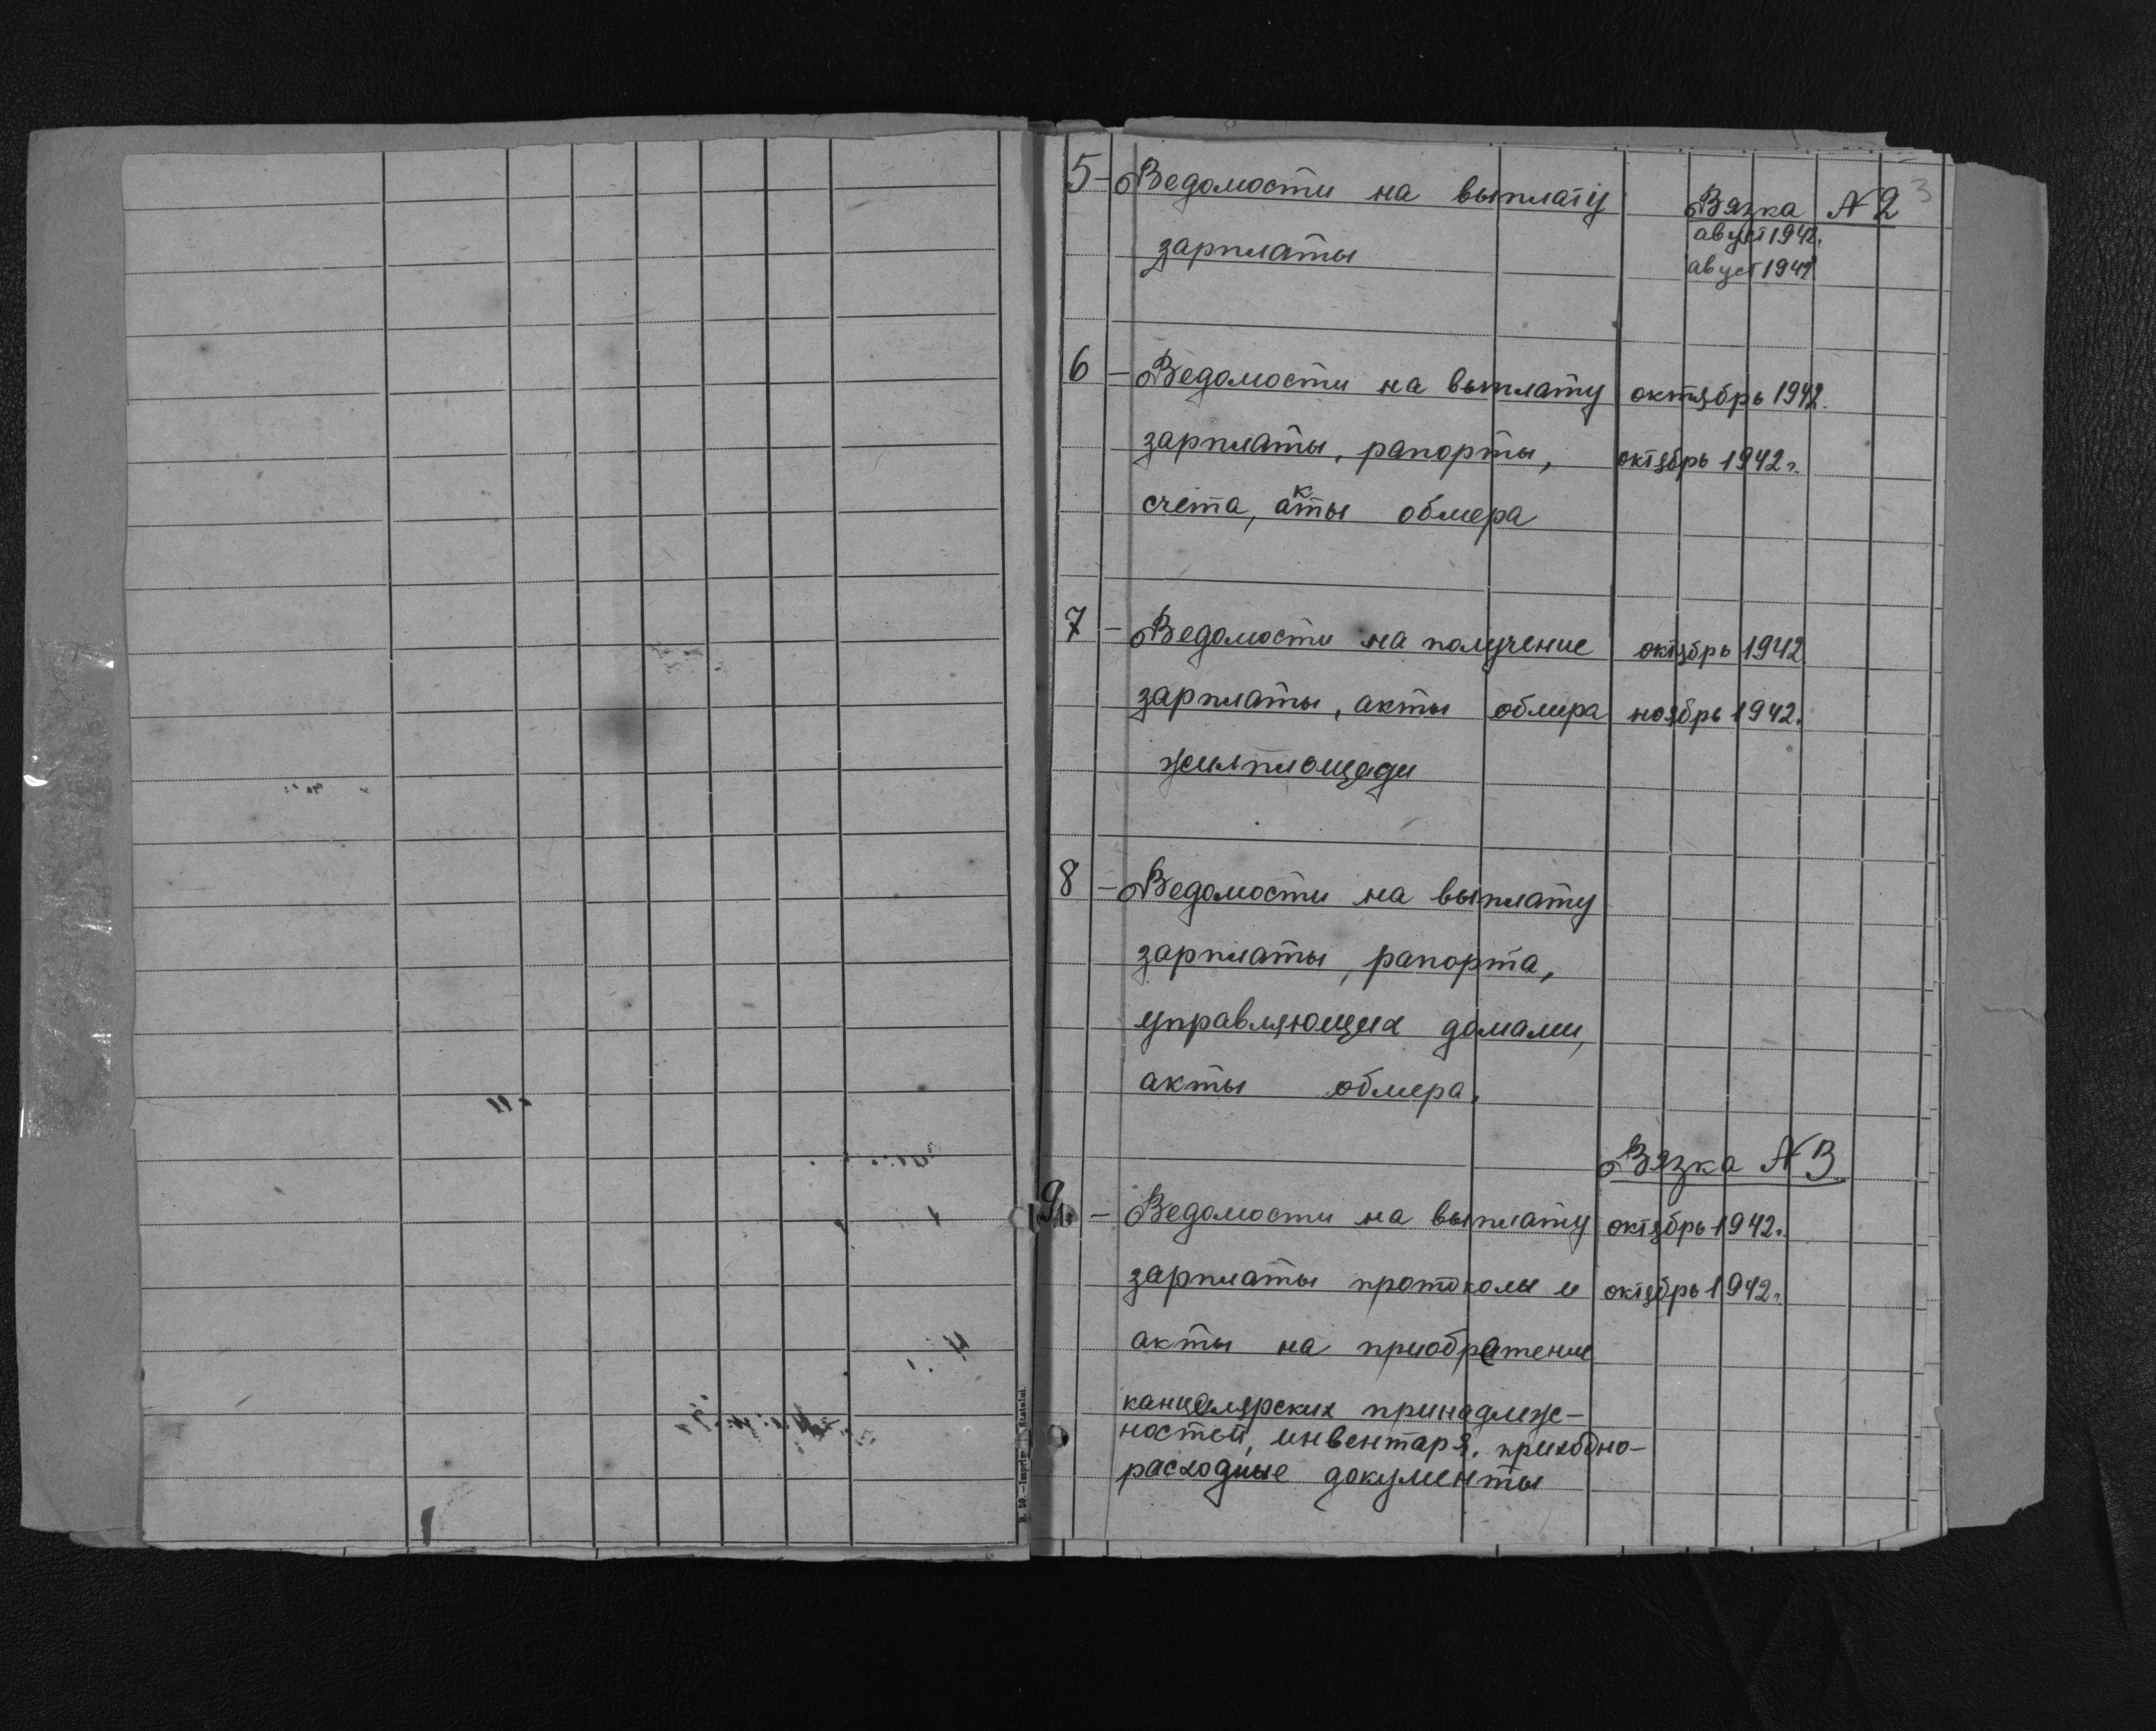 3
5 – Ведомости на выплату Вязка № 2
август 1942.
зарплаты август 1942
6 – Ведомости на выплату октябрь 1942.
зарплаты, рапорты, октябрь 1942 г.
счета, акты обмера
7 – Ведомости на получение октябрь 1942
зарплаты, акты обмера ноябрь 1942.
жилплощади
8 – Ведомости на выплату
зарплаты, рапорта,
управляющих домами,
акты обмера.
Вязка № 3
9 – Ведомости на выплату октябрь 1942.
зарплаты протоколы и октябрь 1942.
акты на приобратение
канцелярских принадлеж-
ностей, инвентаря, приходно-
расходные документы